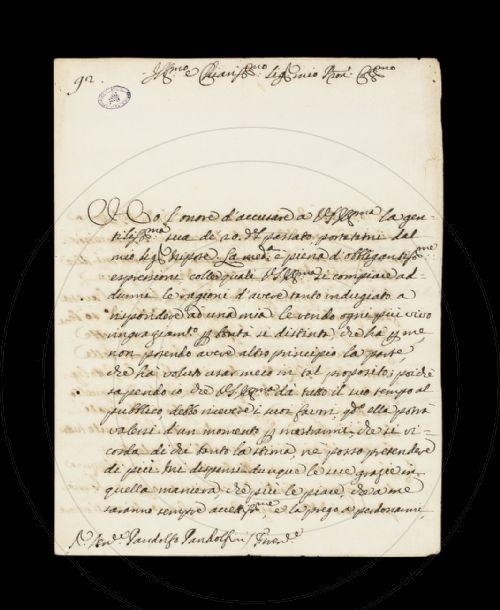 92.
Ill.mo e Chiariss.mo Sig.r mio Pron. Col.mo
Ho l'onore d'accusare a V.S. Ill.ma la gen-
tiliss.ma sua de 20. del passato portatami dal
mio Sig.r Nipote. La med.a è piena d'obbligantiss.me
espressioni colle quali V.S. Ill.ma si compiace ad-
durmi le ragioni d'avere tanto indugiato a
rispondere ad una mia. Le rendo ogni più vivo
ringraziam.to p tanta si distinta, che ha p me,
non potendo avere altro principio la parte,
che ha voluto usar meco in tal proposito; poiche
sapendo io che V.S. Ill.ma dà tutto il suo tempo al
publico, debbo ricevere i suoi favori, q.do ella potrà
valersi d'un momento p mostrarmi, che si ri-
corda di chi tanto la stima, ne posso pretendere
di più. Mi dispensi dunque le sue grazie in
quella maniera, che più le piace, che a me
saranno sempre accettiss.me e la prego a perdonarmi,
Pandolfo Pandolfini Firenze